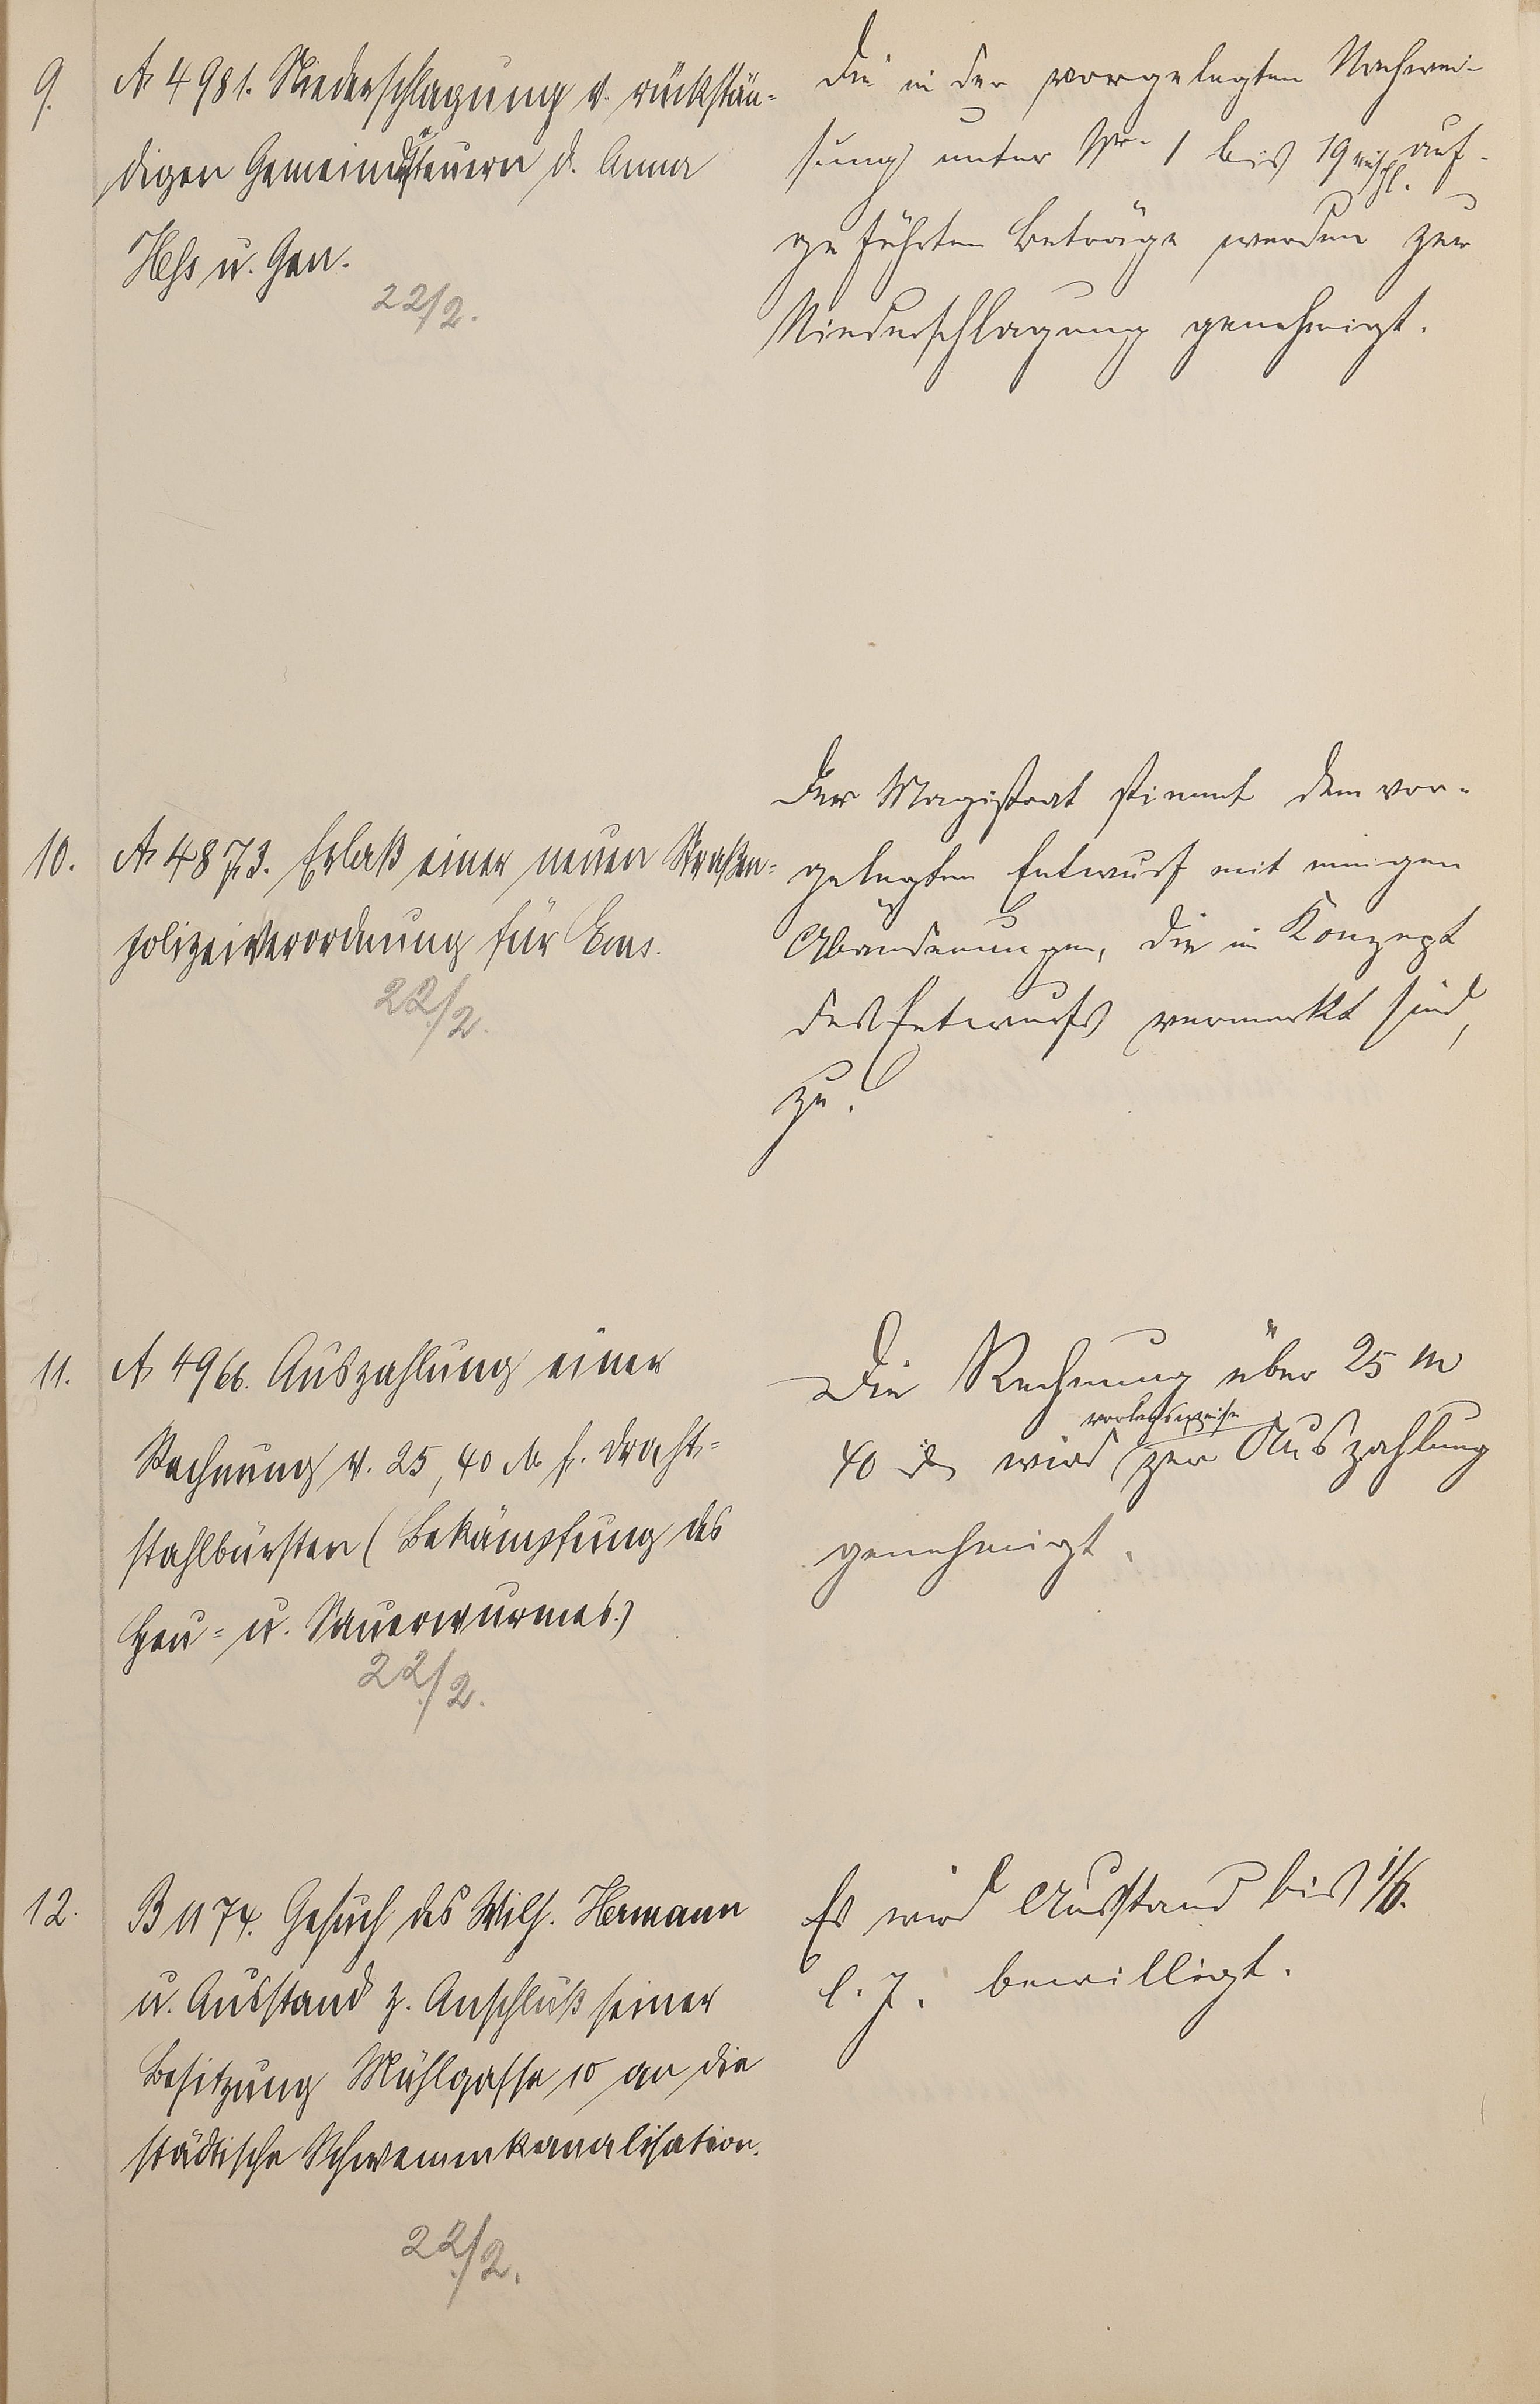 9.
A 4981. Niederschlagung v. rückstän-
digen Gemeindesteuern d. Anna
Hess u. Gen.
22/2.
Die in der vorgelegten Nachwei-
sung unter Nr. 1 bis 19 einschl. auf-
geführten Beträge werden zur
Niederschlagung genehmigt.
10.
A 4873. Erlaß einer neuen Straßen-
polizeiverordnung für Ems.
22/2.
Der Magistrat stimmt dem vor-
gelegten Entwurf mit einigen
Abänderungen, die im Konzept
des Entwurfs vermerkt sind,
zu.
11.
A 4966. Auszahlung einer
Rechnung v. 25,40 M f. Draht-
stahlbürsten (Bekämpfung des
Heu- u. Sauerwurmes.)
22/2.
Die Rechnung über 25 M
40 d wird vorlagsweise zur Auszahlung
genehmigt.
12.
B 1174. Gesuch des Wilh. Hermann
u. Ausstand z. Anschluß seiner
Besitzung Mühlgasse 10 an die
städtische Schwemmkanalisation.
22/2.
Es wird Ausstand bis 1/6.
l. J. bewilligt.